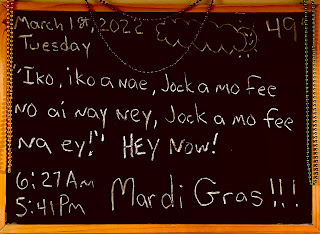 March 1st, 2022
49
Tuesday
"Iko, iko a nae, Jock a mo fee
no ai nay ney, Jock a mo fee
na ey!" Hey Now!
6:27 Am
Mardi Gras!!!
5:41 Pm